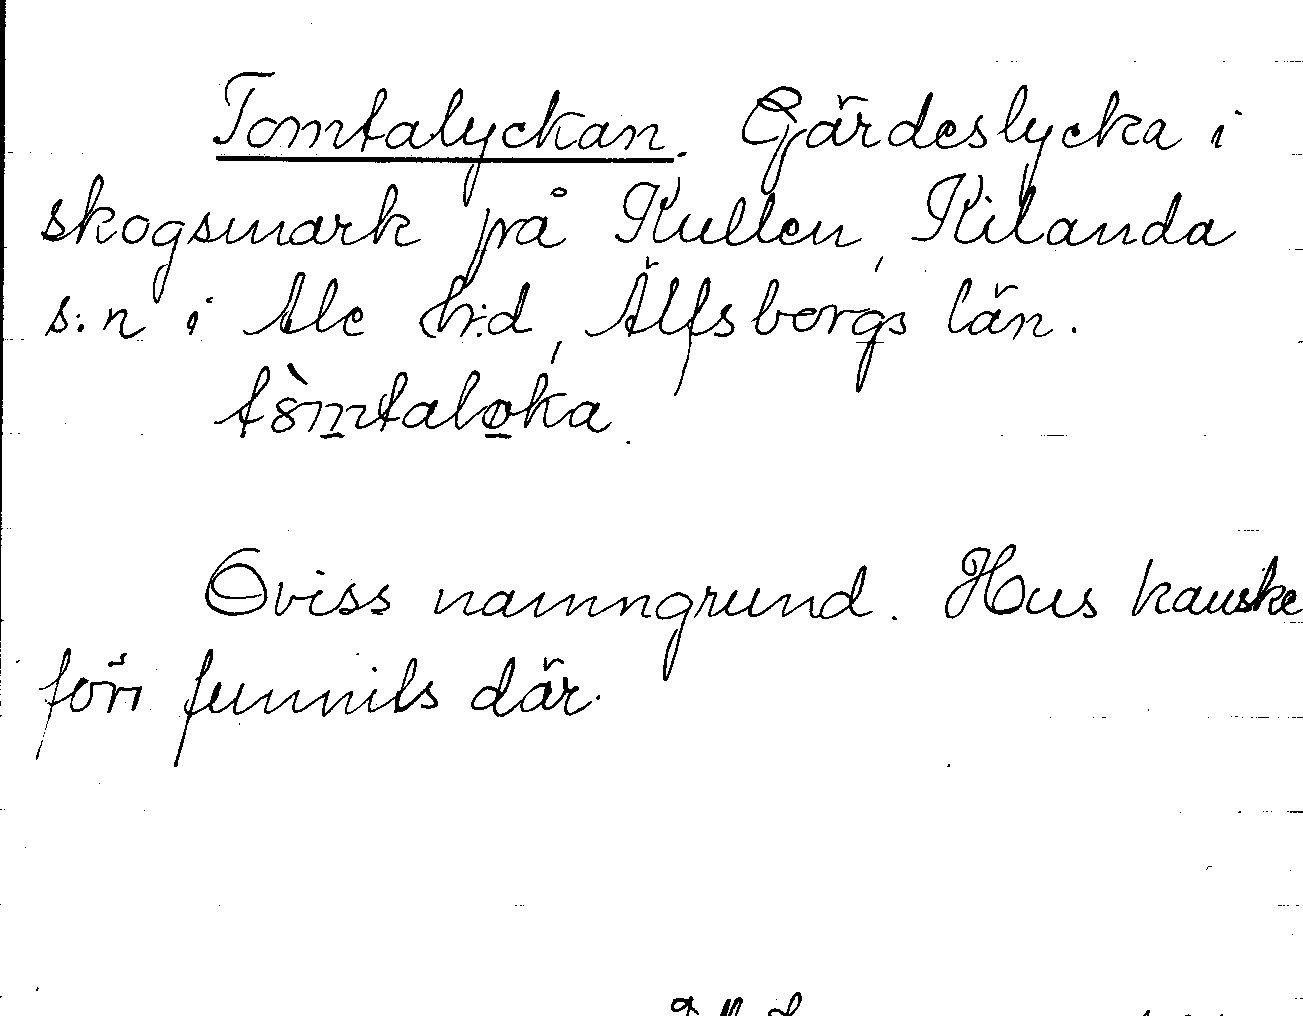 Tomtalyckan. Gärdeslycka i
skogsmark på Kullen, Kilanda
s:n i Ale hr:d, Älfsborgs län.
tòmtaloka.
Oviss namngrund. Hus kanske
förr funnits där.